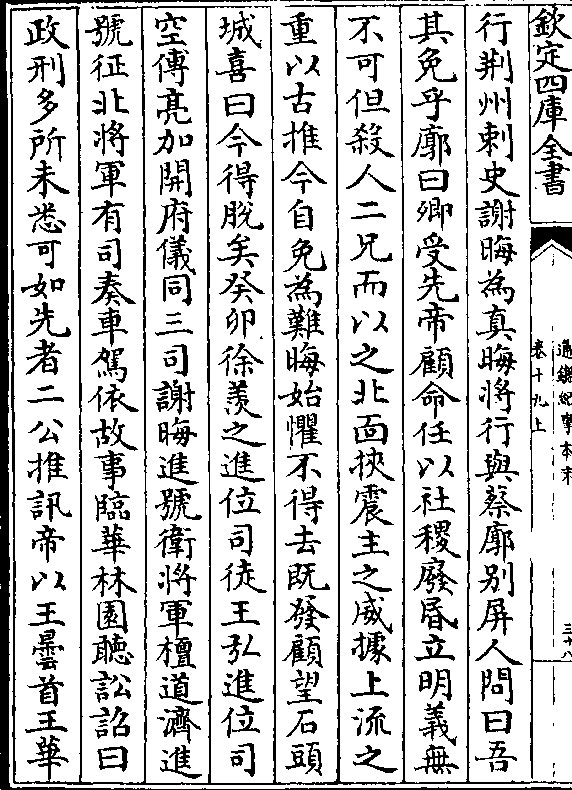 欽定四庫全書
通鑑紀事本末
卷十九上
三十八
行荆州刺史謝晦為真晦將行與蔡廓别屏人問曰吾
其免乎廓曰卿受先帝顧命任以社稷廢昏立明義無
不可但殺人二兄而以之北面挾震主之威據上流之
重以古推今自免為難晦始懼不得去既發顧望石頭
城喜曰今得脫矣癸卯徐羨之進位司徒王弘進位司
空傅亮加開府儀同三司謝晦進號衛將軍檀道濟進
號征北將軍有司奏車駕依故事臨華林園聽訟詔曰
政刑多所未悉可如先者二公推訊帝以王曇首王華